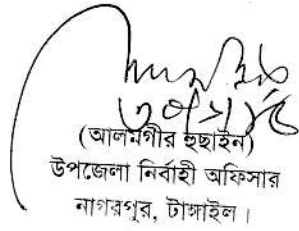 (আলমগীর হুছাইন)
উপজেলা নির্বাহী অফিসার
নাগরপুর, টাঙ্গাইল।